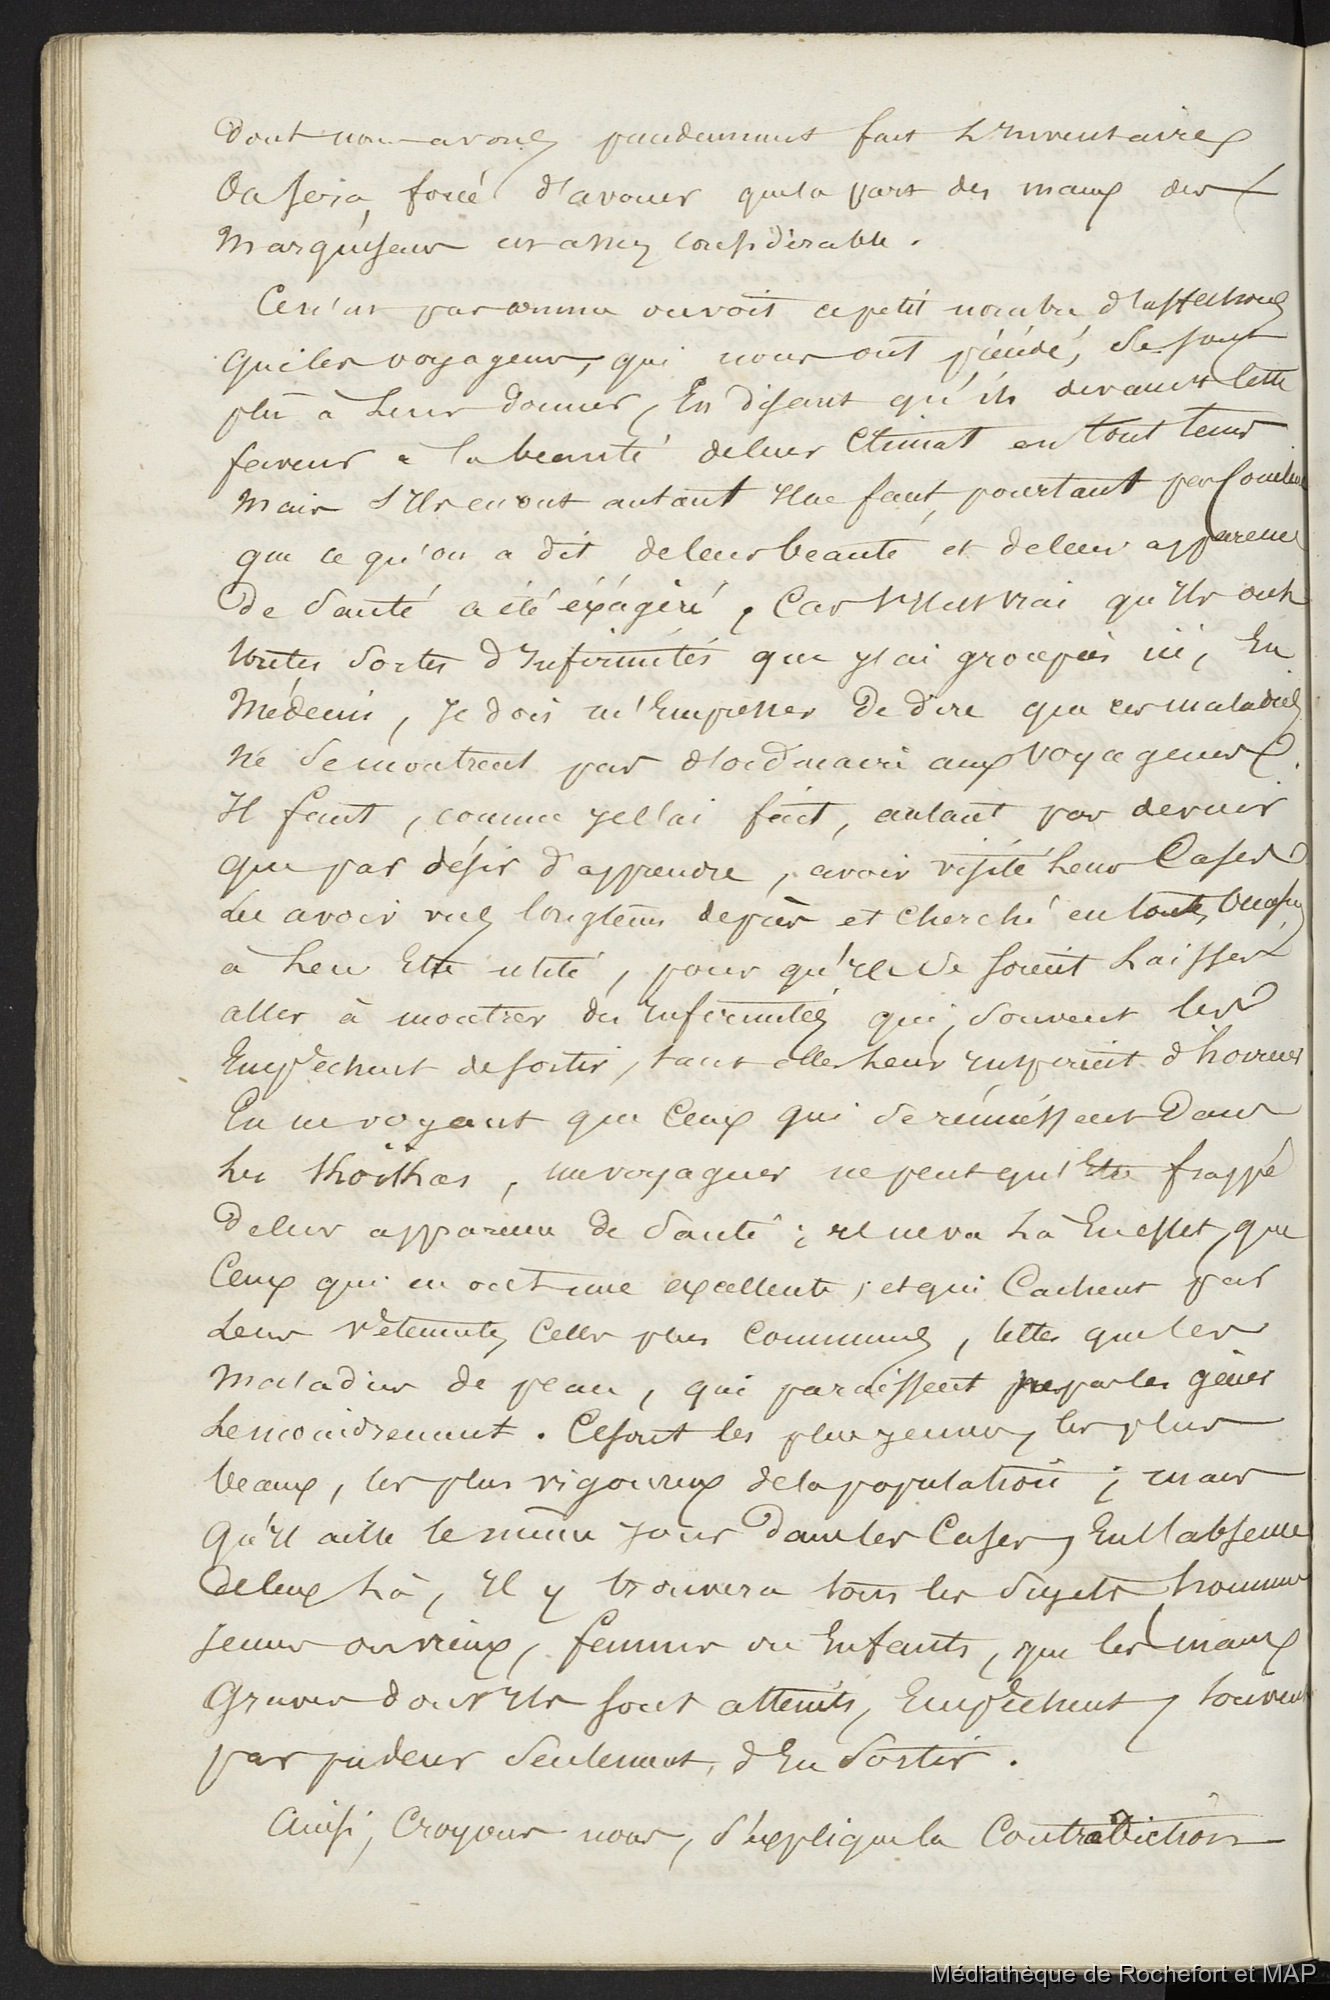 Dont nous avons prudemment fait l'Inventaire,
On sera forcé d'avouer que la part des maux des
Marquisiens est assez considérable.
Ce n'est pas comme on voit ce petit nombre d'affections
que les voyageurs, qui nous ont précédé, se sont
plû à leur donner, En disant qu'ils devaient cette
faveur à la beauté de leur Climat en tout tems
Mais s'Ils en ont autant Il ne faut pourtant pas conclure
que ce qu'on a dit de leur beauté et de leur apparence
De Santé a été éxagéré, Car s'Il est vrai qu'Ils ont
toutes sortes d'Infirmités que j'ai groupées ici, En
Médecin, Je dois m'Empresser De dire que ces maladies
ne se montrent pas d'ordinaire aux Voyageurs.
Il faut, comme je l'ai fait, autant par devoir
que par désir d'apprendre, avoir visité leurs Cases
Les avoir vus longtems de près et cherché en toutes occasions
à leur Etre utile, pour qu'Ils se soient Laissés
aller à montrer des Infirmités qui, souvent les
Empêchent de sortir, tant elles leur inspirent d'horreur
En ne voyant que Ceux qui se réunissent Dans
les Koïkas, un voyageur ne peut qu'Etre frappé
De leur apparence de Santé; il ne va là En effet, que
Ceux qui en ont une excellente; et qui Cachent par
Leurs vêtements, Celles plus communes, telles que les
Maladies de peau, qui paraissent ne pas les gêner
Le moindrement. Ce sont les plus jeunes, les plus
beaux, les plus vigoureux de la population; mais
Qu'Il aille le même jour Dans les Cases, En l'absence
De Ceux Là, Il y trouvera tous les Sujets hommes
Jeunes ou vieux, femmes ou Enfants, que les maux
Graves dont Ils sont atteints, Empêchent, souvent
par pudeur Seulement, d'En Sortir.
Ainsi, Croyons nous, s'explique la Contradiction
Médiathèque de Rochefort et MAP